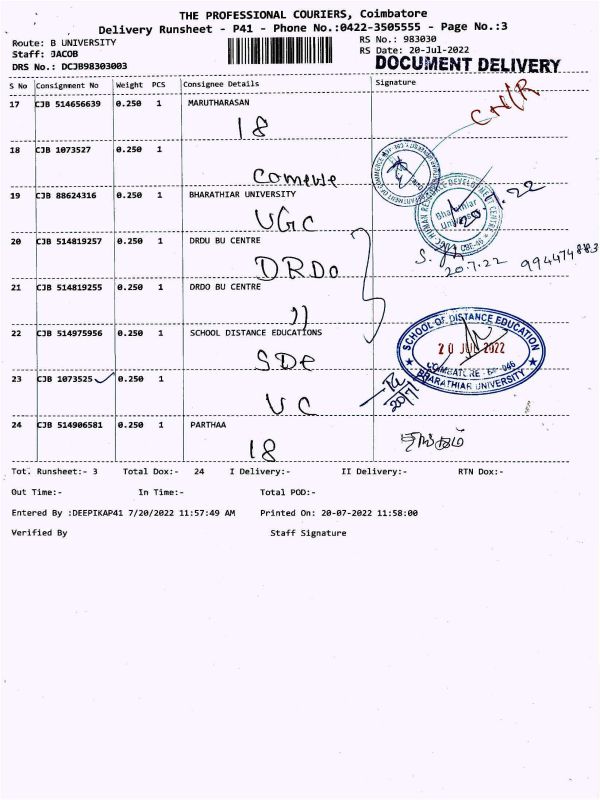 THE PROFESSIONAL COURIERS, Coimbatore
Delivery Runsheet - P41 - Phone No.:0422-3505555 - Page No.:3
Route: B UNIVERSITY RS No.: 983030
Staff: JACOB RS Date: 20-Jul-2022
DRS No.: DCJB98303003 DOCUMENT DELIVERY
S No Consignment No Weight PCS Consignee Details Signature
17 CJB 514656639 0.250 1 MARUTHARASAN
18
18 CJB 1073527 0.250 1
19 CJB 88624316 0.250 1 BHARATHIAR UNIVERSITY
UGC
20 CJB 514819257 0.250 1 DRDU BU CENTRE
DRDO
S. 20.7.22
21 CJB 514819255 0.250 1 DRDO BU CENTRE
11
22 CJB 514975956 0.250 1 SCHOOL DISTANCE EDUCATIONS
SDE
SCHOOL OF DISTANCE EDUCATION
20 JUL 2022
COIMBATORE - 641 046
BHARATHIAR UNIVERSITY
23 CJB 1073525 0.250 1
VC
20/7
24 CJB 514906581 0.250 1 PARTHAA
18
Tot. Runsheet:- 3 Total Dox:- 24 I Delivery:- II Delivery:- RTN Dox:-
Out Time:- In Time:- Total POD:-
Entered By :DEEPIKAP41 7/20/2022 11:57:49 AM Printed On: 20-07-2022 11:58:00
Verified By Staff Signature